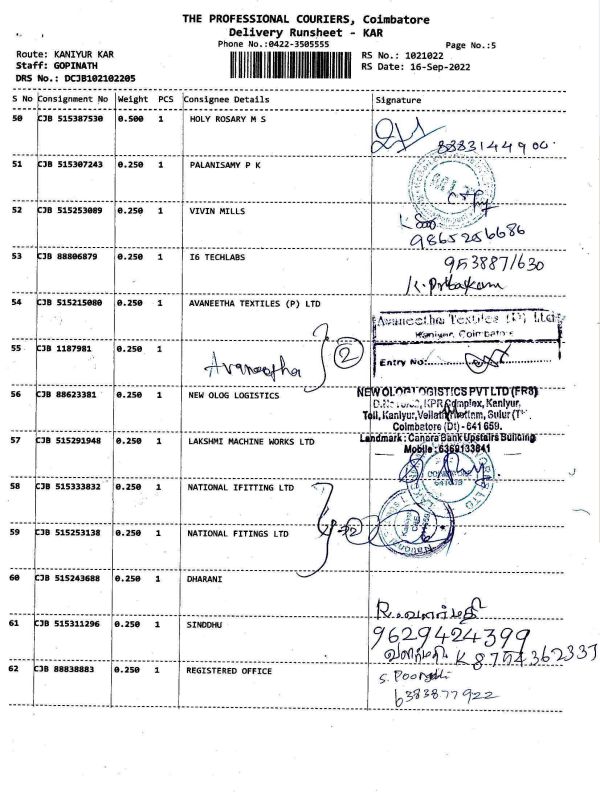 THE PROFESSIONAL COURIERS, Coimbatore
Delivery Runsheet - KAR
Phone No.:0422-3505555
Page No.:5
Route: KANIYUR KAR
RS No.: 1021022
Staff: GOPINATH
RS Date: 16-Sep-2022
DRS No.: DCJB102102205
S No Consignment No Weight PCS Consignee Details Signature
50 CJB 515387530 0.500 1 HOLY ROSARY M S
8883144900
51 CJB 515307243 0.250 1 PALANISAMY P K
52 CJB 515253089 0.250 1 VIVIN MILLS
9865256686
53 CJB 88806879 0.250 1 I6 TECHLABS
9538871630
54 CJB 515215080 0.250 1 AVANEETHA TEXTILES (P) LTD
Avaneetha Textiles (P) Ltd
Kaniyur, Coimbatore
55 CJB 1187981 0.250 1 Avaneetha 2
Entry No:
56 CJB 88623381 0.250 1 NEW OLOG LOGISTICS
NEW OLOG LOGISTICS PVT LTD (FRS)
KPR Complex, Kaniyur,
Toll, Kaniyur, Sulur (T
Coimbatore (Dt) - 641 659.
57 CJB 515291948 0.250 1 LAKSHMI MACHINE WORKS LTD
Landmark : Canara Bank Upstairs Building
Mobile : 6369133841
58 CJB 515333832 0.250 1 NATIONAL IFITTING LTD
59 CJB 515253138 0.250 1 NATIONAL FITINGS LTD
2
60 CJB 515243688 0.250 1 DHARANI
61 CJB 515311296 0.250 1 SINDDHU
9629424399
K 8754362337
62 CJB 88838883 0.250 1 REGISTERED OFFICE
6383877922